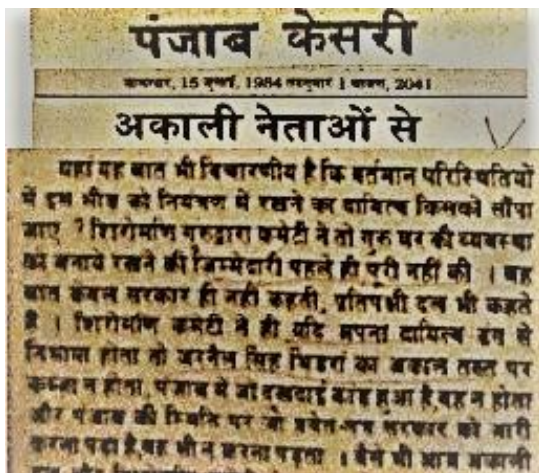 पंजाब केसरी
15 जुलाई, 1984 तदनुसार 1 श्रावण, 2041
अकाली नेताओं से
यहां यह बात भी विचारणीय है कि वर्तमान परिस्थितियों
में इस भीड़ को नियंत्रण में रखने का दायित्व किसको सौंपा
जाए ? शिरोमणि गुरुद्वारा कमेटी ने तो गुरु घर की व्यवस्था
को बनाये रखने की जिम्मेदारी पहले ही पूरी नहीं की । यह
बात केवल सरकार ही नहीं कहती, प्रतिपक्षी दल भी कहते
हैं । शिरोमणि कमेटी ने ही यदि अपना दायित्व ढंग से
निभाया होता तो जरनैल सिंह भिंडरां का अकाल तख्त पर
कब्जा न होता, पंजाब में जो दुखदाई कांड हुआ है, वह न होता
और पंजाब की स्थिति पर जो श्वेत-पत्र सरकार को जारी
करना पड़ा है, वह भी न करना पड़ता । वैसे भी आज अकाली